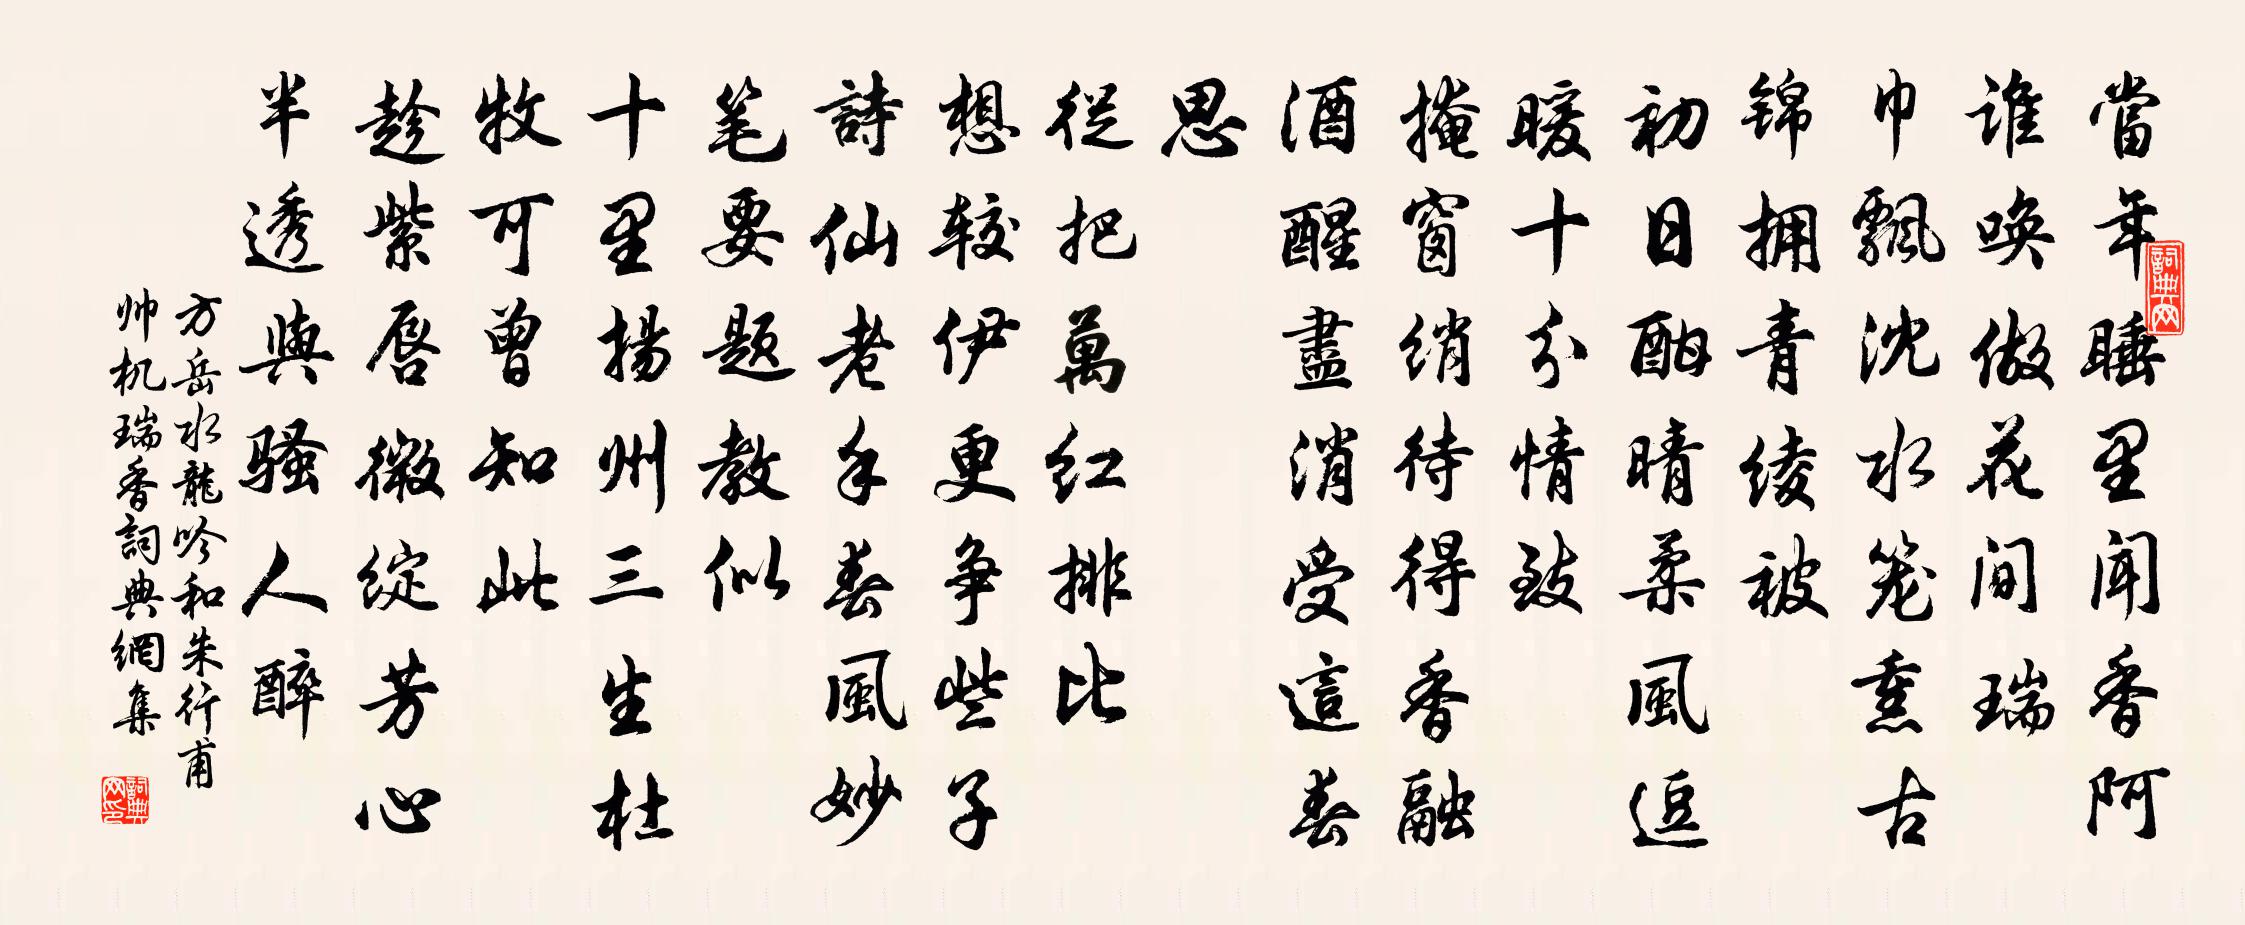 當年睡里闻香阿
谁唤做花间瑞
巾飘沈水笼熏古
锦拥青绫被
初日酣晴柔風逗
暖十分情致
掩窗绡待得香融
酒醒盡消受這春
思
從把萬红排比
想较伊更争些子
詩仙老手春風妙
笔要题教似
十里揚州三生杜
牧可曾知此
趁紫唇微绽芳心
半透與骚人醉
方岳水龍吟和朱行甫
帅机瑞香詞典網集
詞典网
詞典网印